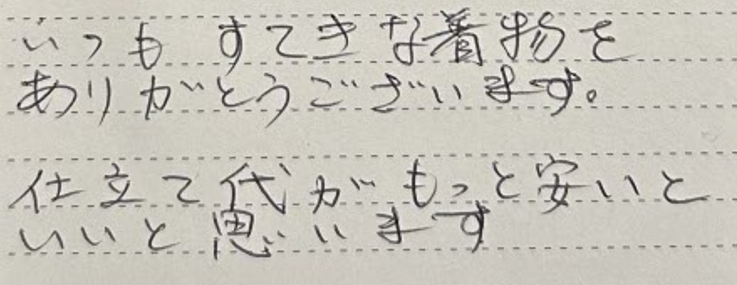 いつも すてきな着物を
ありがとうございます。
仕立て代がもっと安いと
いいと思います